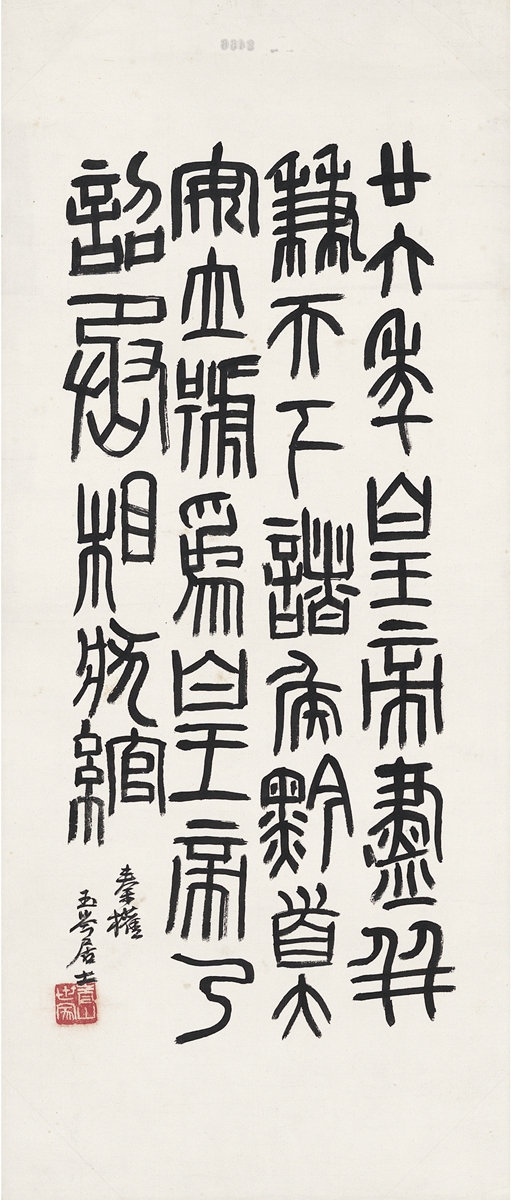 廿六年皇帝盡并
兼天下諸侯黔首大
安立號為皇帝乃
詔丞相狀綰
秦權
玉岑居士